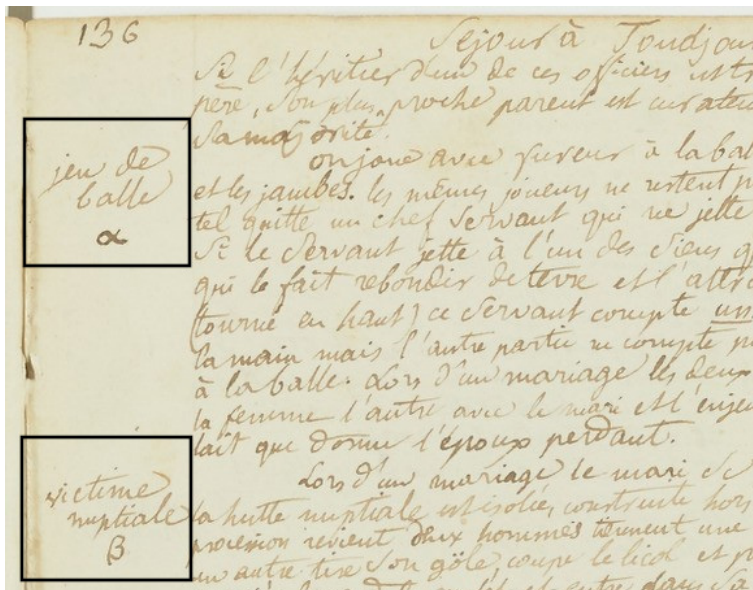 136
Séjour à Toudjou
Si l'héritier d'un de ces officiers est
père, son plus proche parent est curateu
Sa majorité.
jeu de
balle
α
on joue avec fureur à la bal
et les jambes. les mêmes joueurs ne restent
tel quitte un chef Servant qui ne jette
Si le Servant jette à l'un des Siens
qui le fait rebondir de terre et l'attr
(tourné en haut) ce Servant compte
la main mais l'autre partie ne compte
à la balle. Lors d'un mariage les deux
la femme l'autre avec le mari et l'enjeu
lait que donne l'époux perdant.
victime
nuptiale
β
Lors d'un mariage le mari
la hutte nuptiale est isolée, construite hors
procession revient deux hommes tiennent une
un autre tire Son göle, coupe le licol et